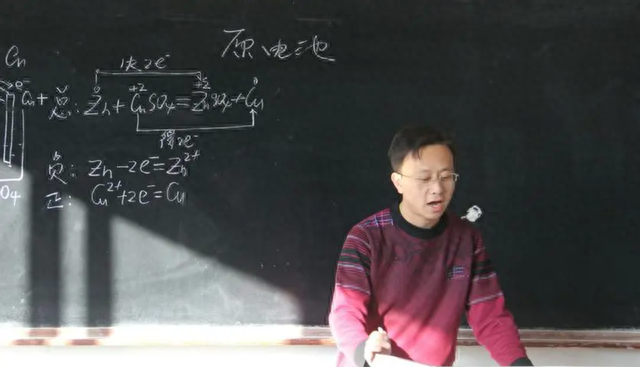 原电池
Cu
失2e⁻
0 +2
+2 0
总: Zn + CuSO₄ = ZnSO₄ + Cu
得2e⁻
负: Zn - 2e⁻ = Zn²⁺
正: Cu²⁺ + 2e⁻ = Cu
O₄